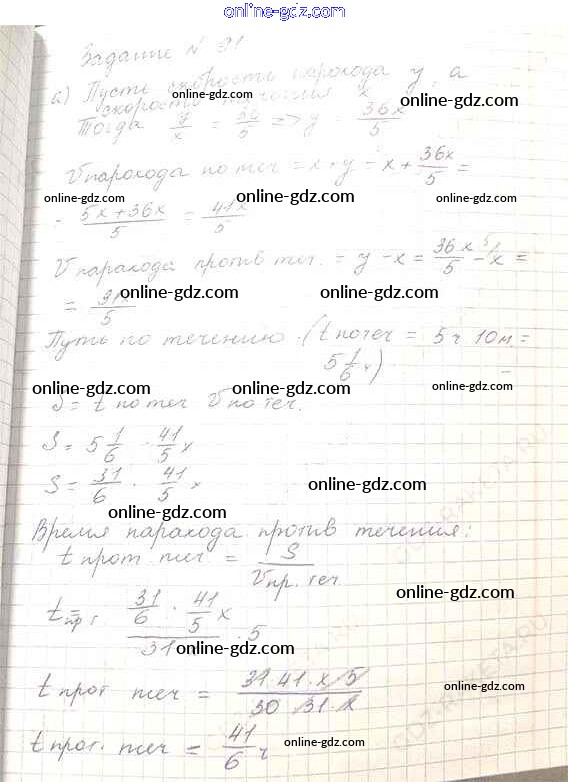 online-gdz.com
Задание № 91
а) Пусть скорость парохода y, а
скорость течения x
online-gdz.com
online-gdz.com
Тогда y/x = 36/5 => y = 36x/5
V парохода по теч = x + y = x + 36x/5 =
online-gdz.com online-gdz.com online-gdz.com
= 5x+36x/5 = 41x/5
V парахода против теч. = y - x = 36x/5 - x =
online-gdz.com online-gdz.com
= 31x/5
Путь по течению. (t по теч = 5 ч 10 м =
5 1/6 ч)
online-gdz.com online-gdz.com online-gdz.com
S = t по теч V по теч.
S = 5 1/6 · 41/5 x
S = 31/6 · 41/5 x
online-gdz.com
GDZ.RAKETA.RU
online-gdz.com
Время парахода против течения:
t прот. теч = S / V пр. теч
online-gdz.com
t пр т = 31/6 · 41/5 x / 31 · 5
online-gdz.com
GDZ.RAKETA.RU
t прот теч = 31 41 · x 5 / 30 31 · x
online-gdz.com
t прот. теч = 41/6 ч
online-gdz.com